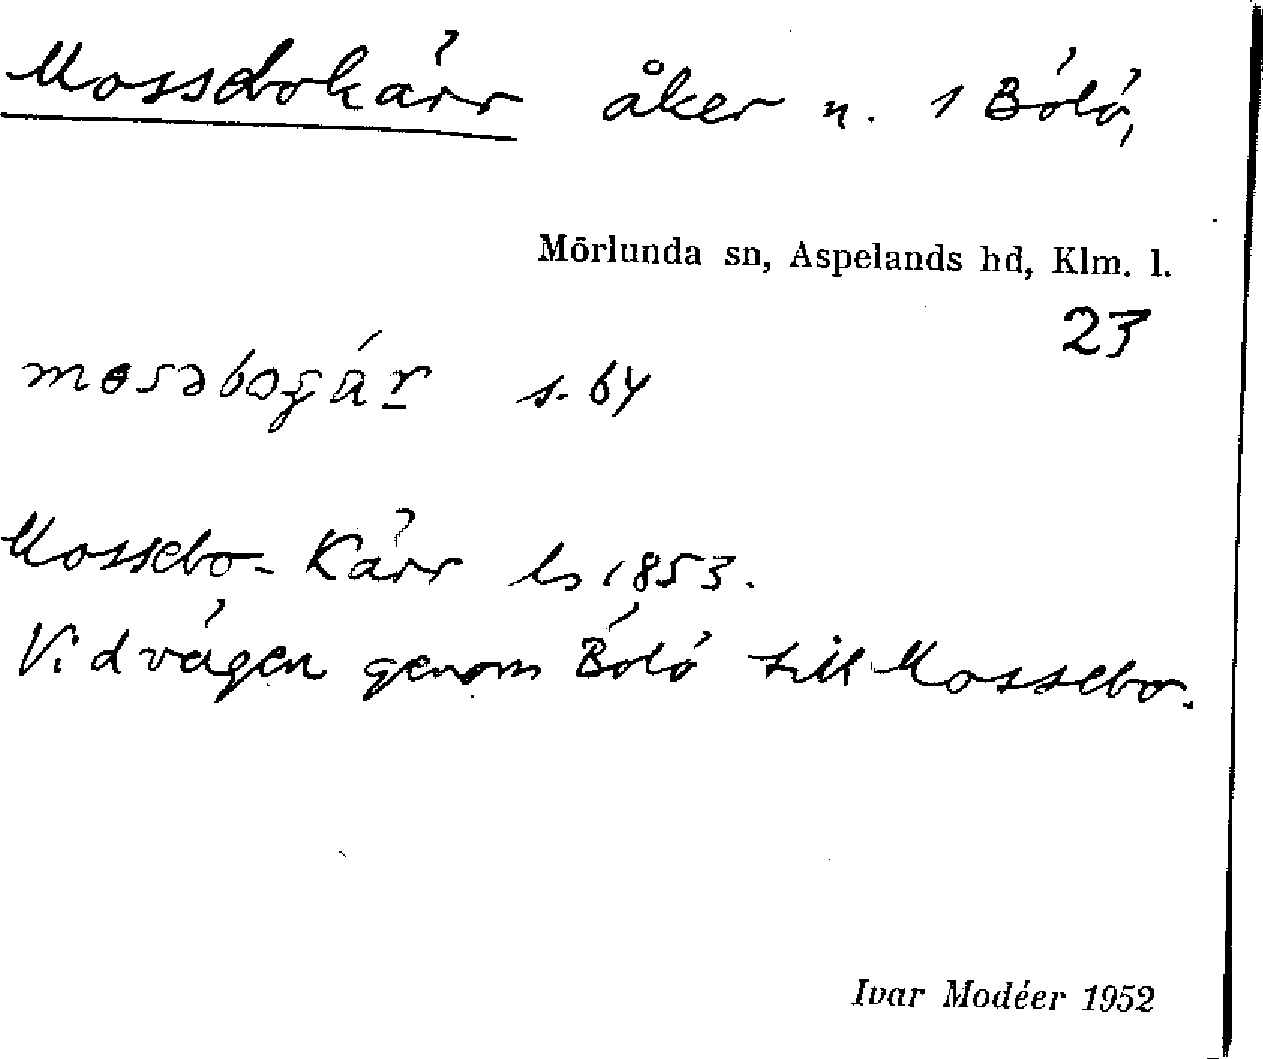 Mossebokärr åker n. 1 Bölö,
Mörlunda sn, Aspelands hd, Klm. l.
23
s. 64
Mossebo-Kärr ls 1853.
Vid vägen genom Bölö till Mossebo.
Ivar Modéer 1952